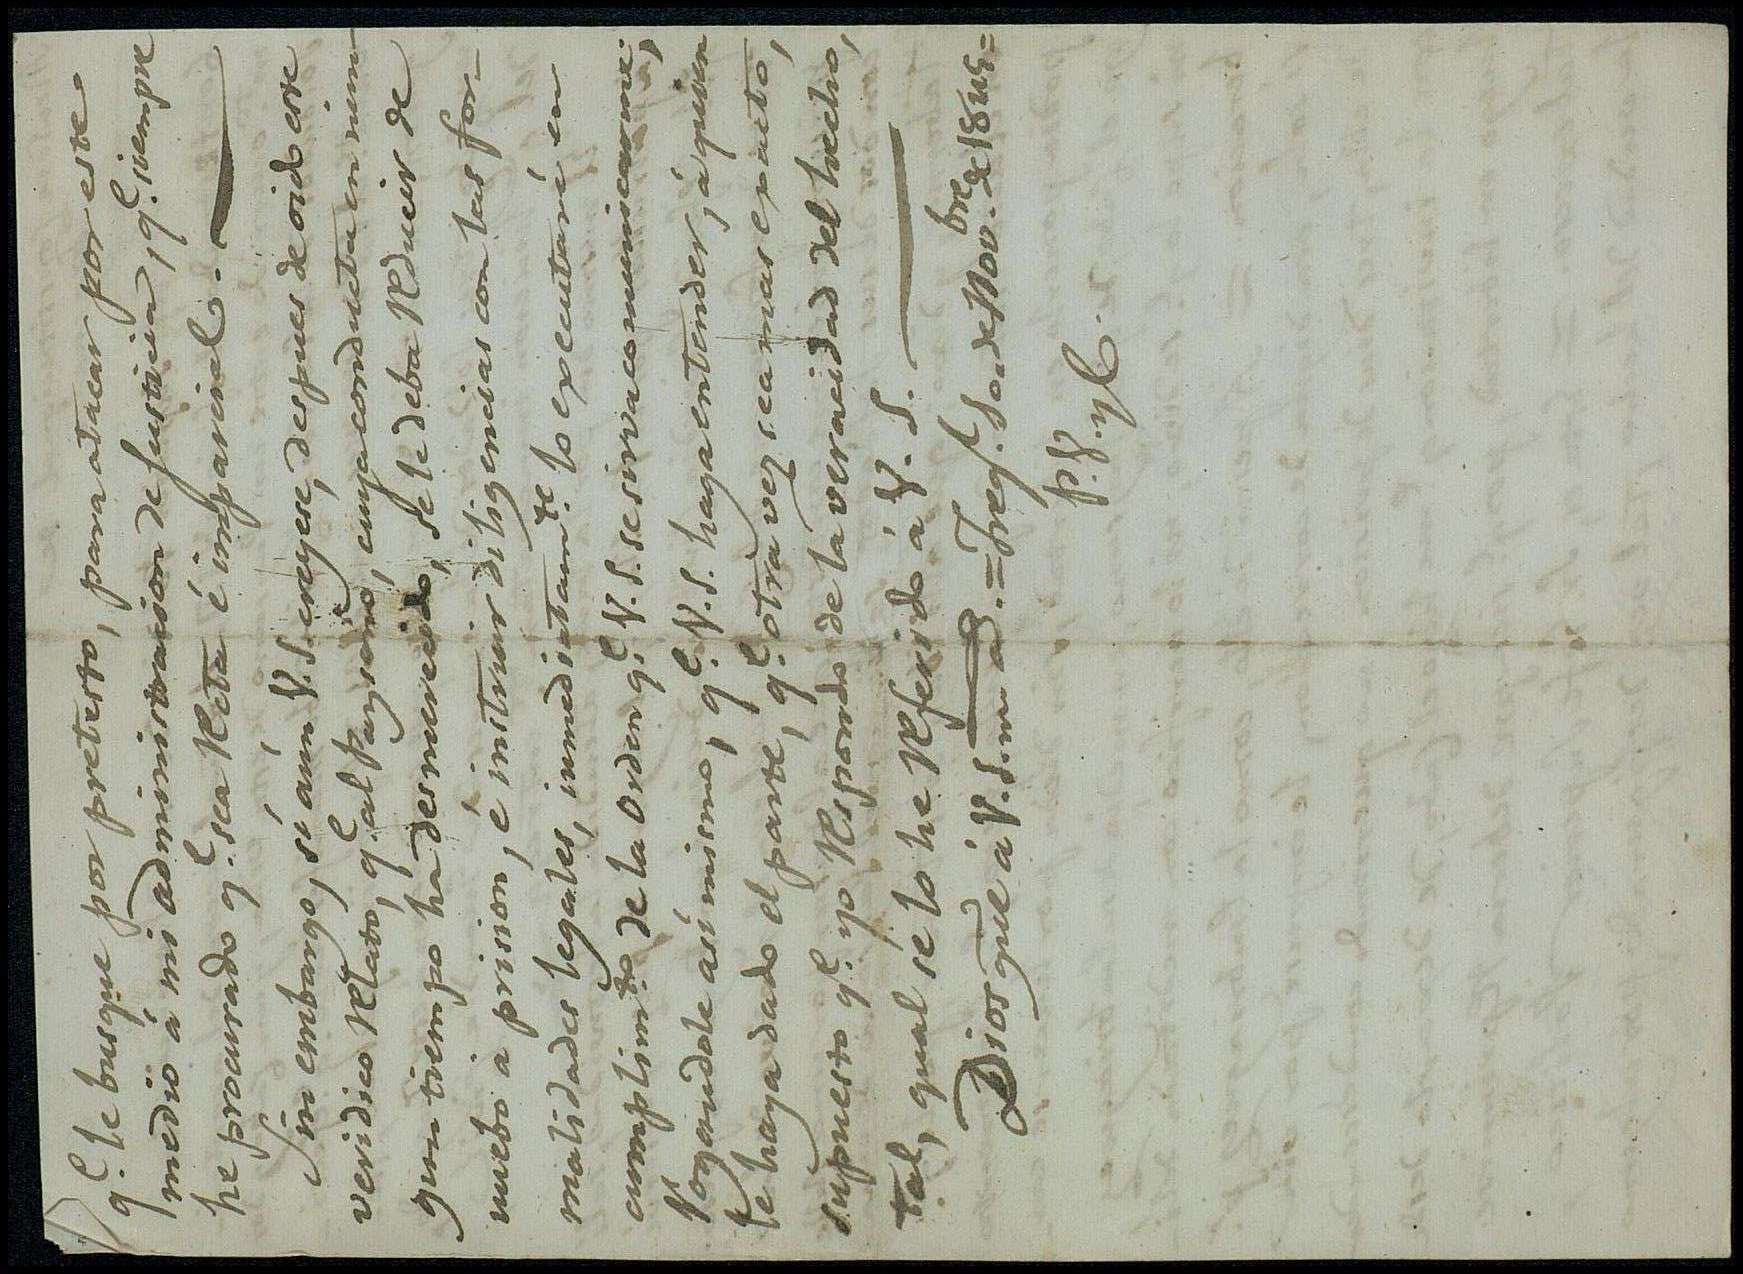 q.e le busque por pretesto, para atacar por este
medio á mi administracion de justicia, q.e siempre
he procurado q.e sea Recta é imparcial.
Sin embargo, si aún V.S. creyese, despues de oido este
veridico Relato, q.e al Paysano, cuya conducta en nin-
gun tiempo ha desmerecido, se le deba Reducir de
nuebo a prision, é instruir diligencias con las for-
malidades legales, inmediatam.te lo executaré en
cumplim.to de la orden q.e V.S. se sirva comunicarme,
Rogandole asi mismo, q.e V.S. haga entender, á quien
le haya dado el parte, q.e otra vez sea mas exacto,
supuesto q.e yo Respondo de la veracidad del hecho,
tal, qual se lo he Referido á V.S.
Dios gue á V.S. m.s a.s = Freg.l de Nov.bre de 18
P. y C.